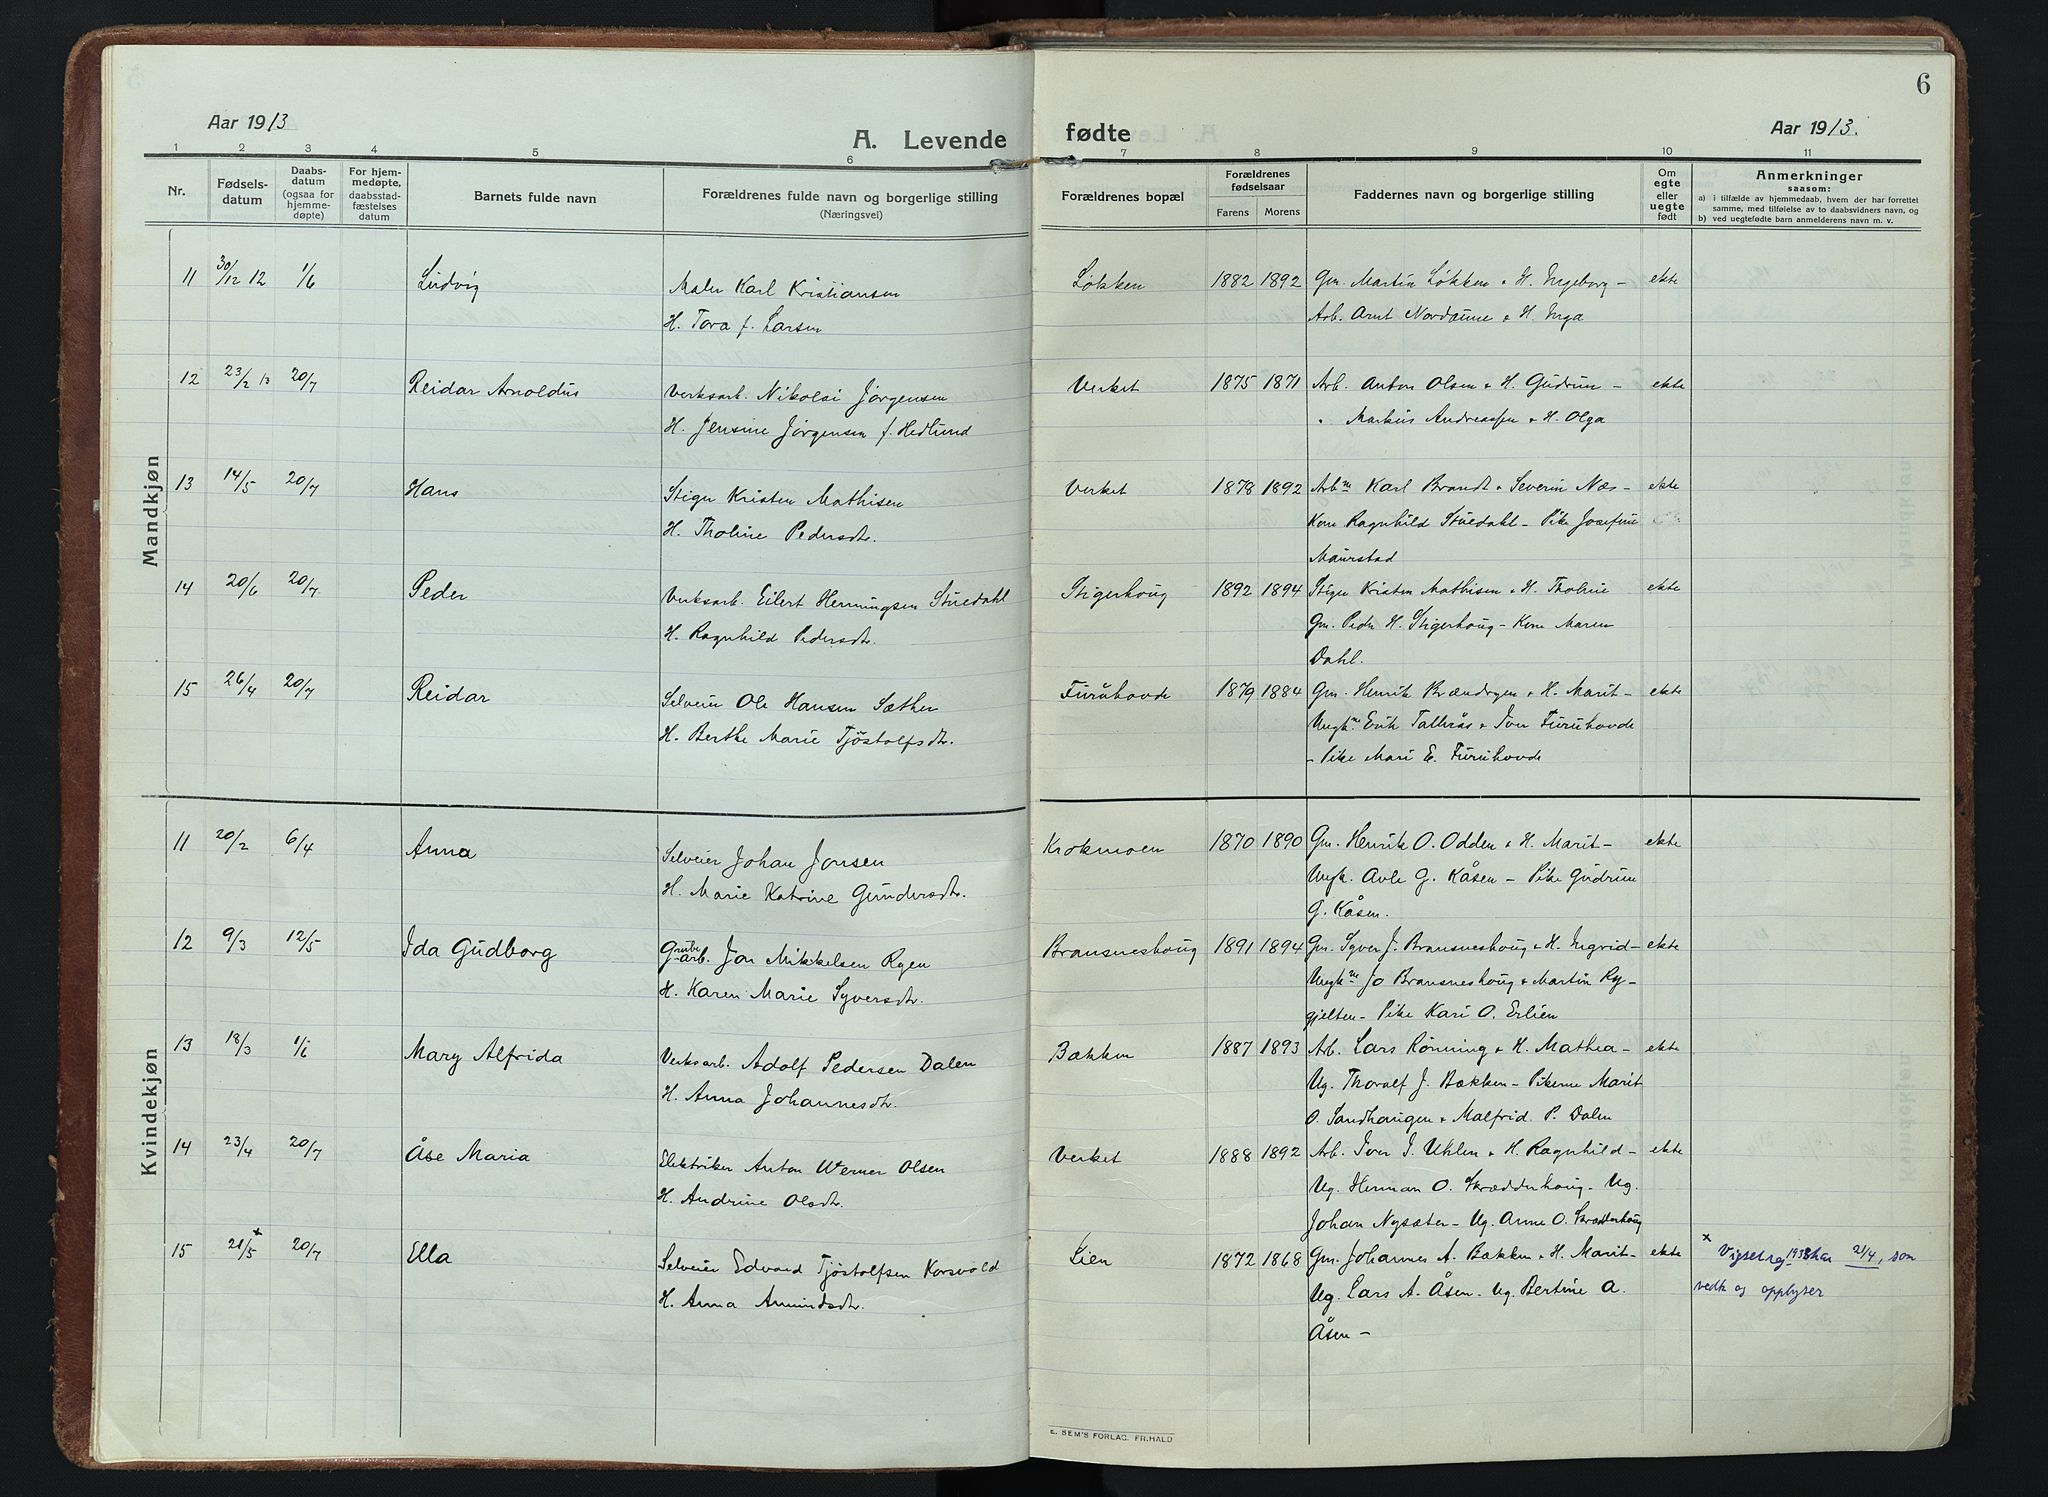 6
Aar 1913
A. Levende fødte
Aar 1913.
1 2 3 4 5 6 7 8 9 10 11
Nr.
Fødselsdatum
Daabsdatum (ogsaa for hjemmedøpte)
For hjemmedøpte, daabsstadfæstelses datum
Barnets fulde navn
Forældrenes fulde navn og borgerlige stilling
(Næringsvei)
Forældrenes bopæl
Forældrenes fødselsaar
Farens Morens
Faddernes navn og borgerlige stilling
Om egte eller uegte født
Anmerkninger
saasom:
a) i tilfælde av hjemmedaab, hvem der har forrettet samme, med tilføielse av to daabsvidners navn, og
b) ved uegtefødte barn anmelderens navn m. v.
Mandkjøn
11 30/12 12 1/6 Ludvig Maler Karl Kristiansen Løkken 1882 1892 Gm. Martin Løkken & H. Ingeborg – ekte
H. Tora f. Larsen Arb. Arnt Nordaune & H. Inga
12 23/2 13 20/7 Reidar Arnoldus Verksarb. Nikolai Jørgensen Verket 1875 1871 Arb. Anton Olsen & H. Gudrun – ekte
H. Jensine Jørgensen f. Hedlund " Markus Andreassen & H. Olga
13 14/5 20/7 Hans Stiger Kristen Mathisen Verket 1878 1892 Arbm Karl Brandt & Severin Næs – ekte
H. Tholine Pedersdtr. Kone Ragnhild Stuedahl – Pike Josefine
Maurstad
14 20/6 20/7 Peder Verksarb. Eilert Henningsen Stuedahl Stigerhoug 1892 1894 Stiger Kristen Mathisen & H. Tholine ekte
H. Ragnhild Pedersdtr. Gm. Peder H. Stigerhoug – Kone Maren
Dahl.
15 26/4 20/7 Reidar Selveier Ole Hansen Sæther Furuhovde 1879 1884 Gm. Henrik Brændryen & H. Marit – ekte
H. Berthe Marie Tjøstolfsdtr. Ungkm Erik Tallerås & Iver Furuhovde
– Pike Mari E. Furuhovde
Kvindekjøn
11 20/2 6/4 Anna Selveier Johan Jonsen Krokmoen 1870 1890 Gm. Henrik O. Odden & H. Marit – ekte
H. Marie Katrine Gundersdtr. Ungk. Avle G. Kåsen – Pike Gudrun
G. Kåsen.
12 9/3 12/5 Ida Gudborg Grubearb. Jon Mikkelsen Ryen Bransneshoug 1891 1894 Gm. Syver J. Bransneshoug & H. Ingrid – ekte
H. Karen Marie Syversdtr. Ungkm Jo Bransneshoug & Martin Ry-
gjelten – Pike Kari O. Erlien
13 18/3 1/6 Mary Alfrida Verksarb. Adolf Pedersen Dalen Bækken 1887 1893 Arb. Lars Rønning & H. Mathea – ekte
H. Anna Johannesdtr. Ug. Thoralf J. Bækken – Pikerne Marit
O. Sandhaugen & Malfrid P. Dalen
14 23/4 20/7 Åse Maria Elektriker Anton Werner Olsen Verket 1888 1892 Arb. Iver I. Uhlen & H. Ragnhild – ekte
H. Andrine Olsdtr. Ug. Herman O. Skrædderhoug. Ug.
Johan Nysæter – Ug. Anne O. Skrædderhoug
15 21/5 x 20/7 Ella Selveier Edvard Tjøstolfsen Korsvold Lien 1872 1868 Gm. Johannes A. Bækken & H. Marit – ekte x Vigselreg 1938 har 21/4, som
H. Anna Amundsdtr. Ug. Lars A. Åsen. Ug. Bertine A. vedk og opplyser
Åsen –
E. SEM'S FORLAG, FR.HALD